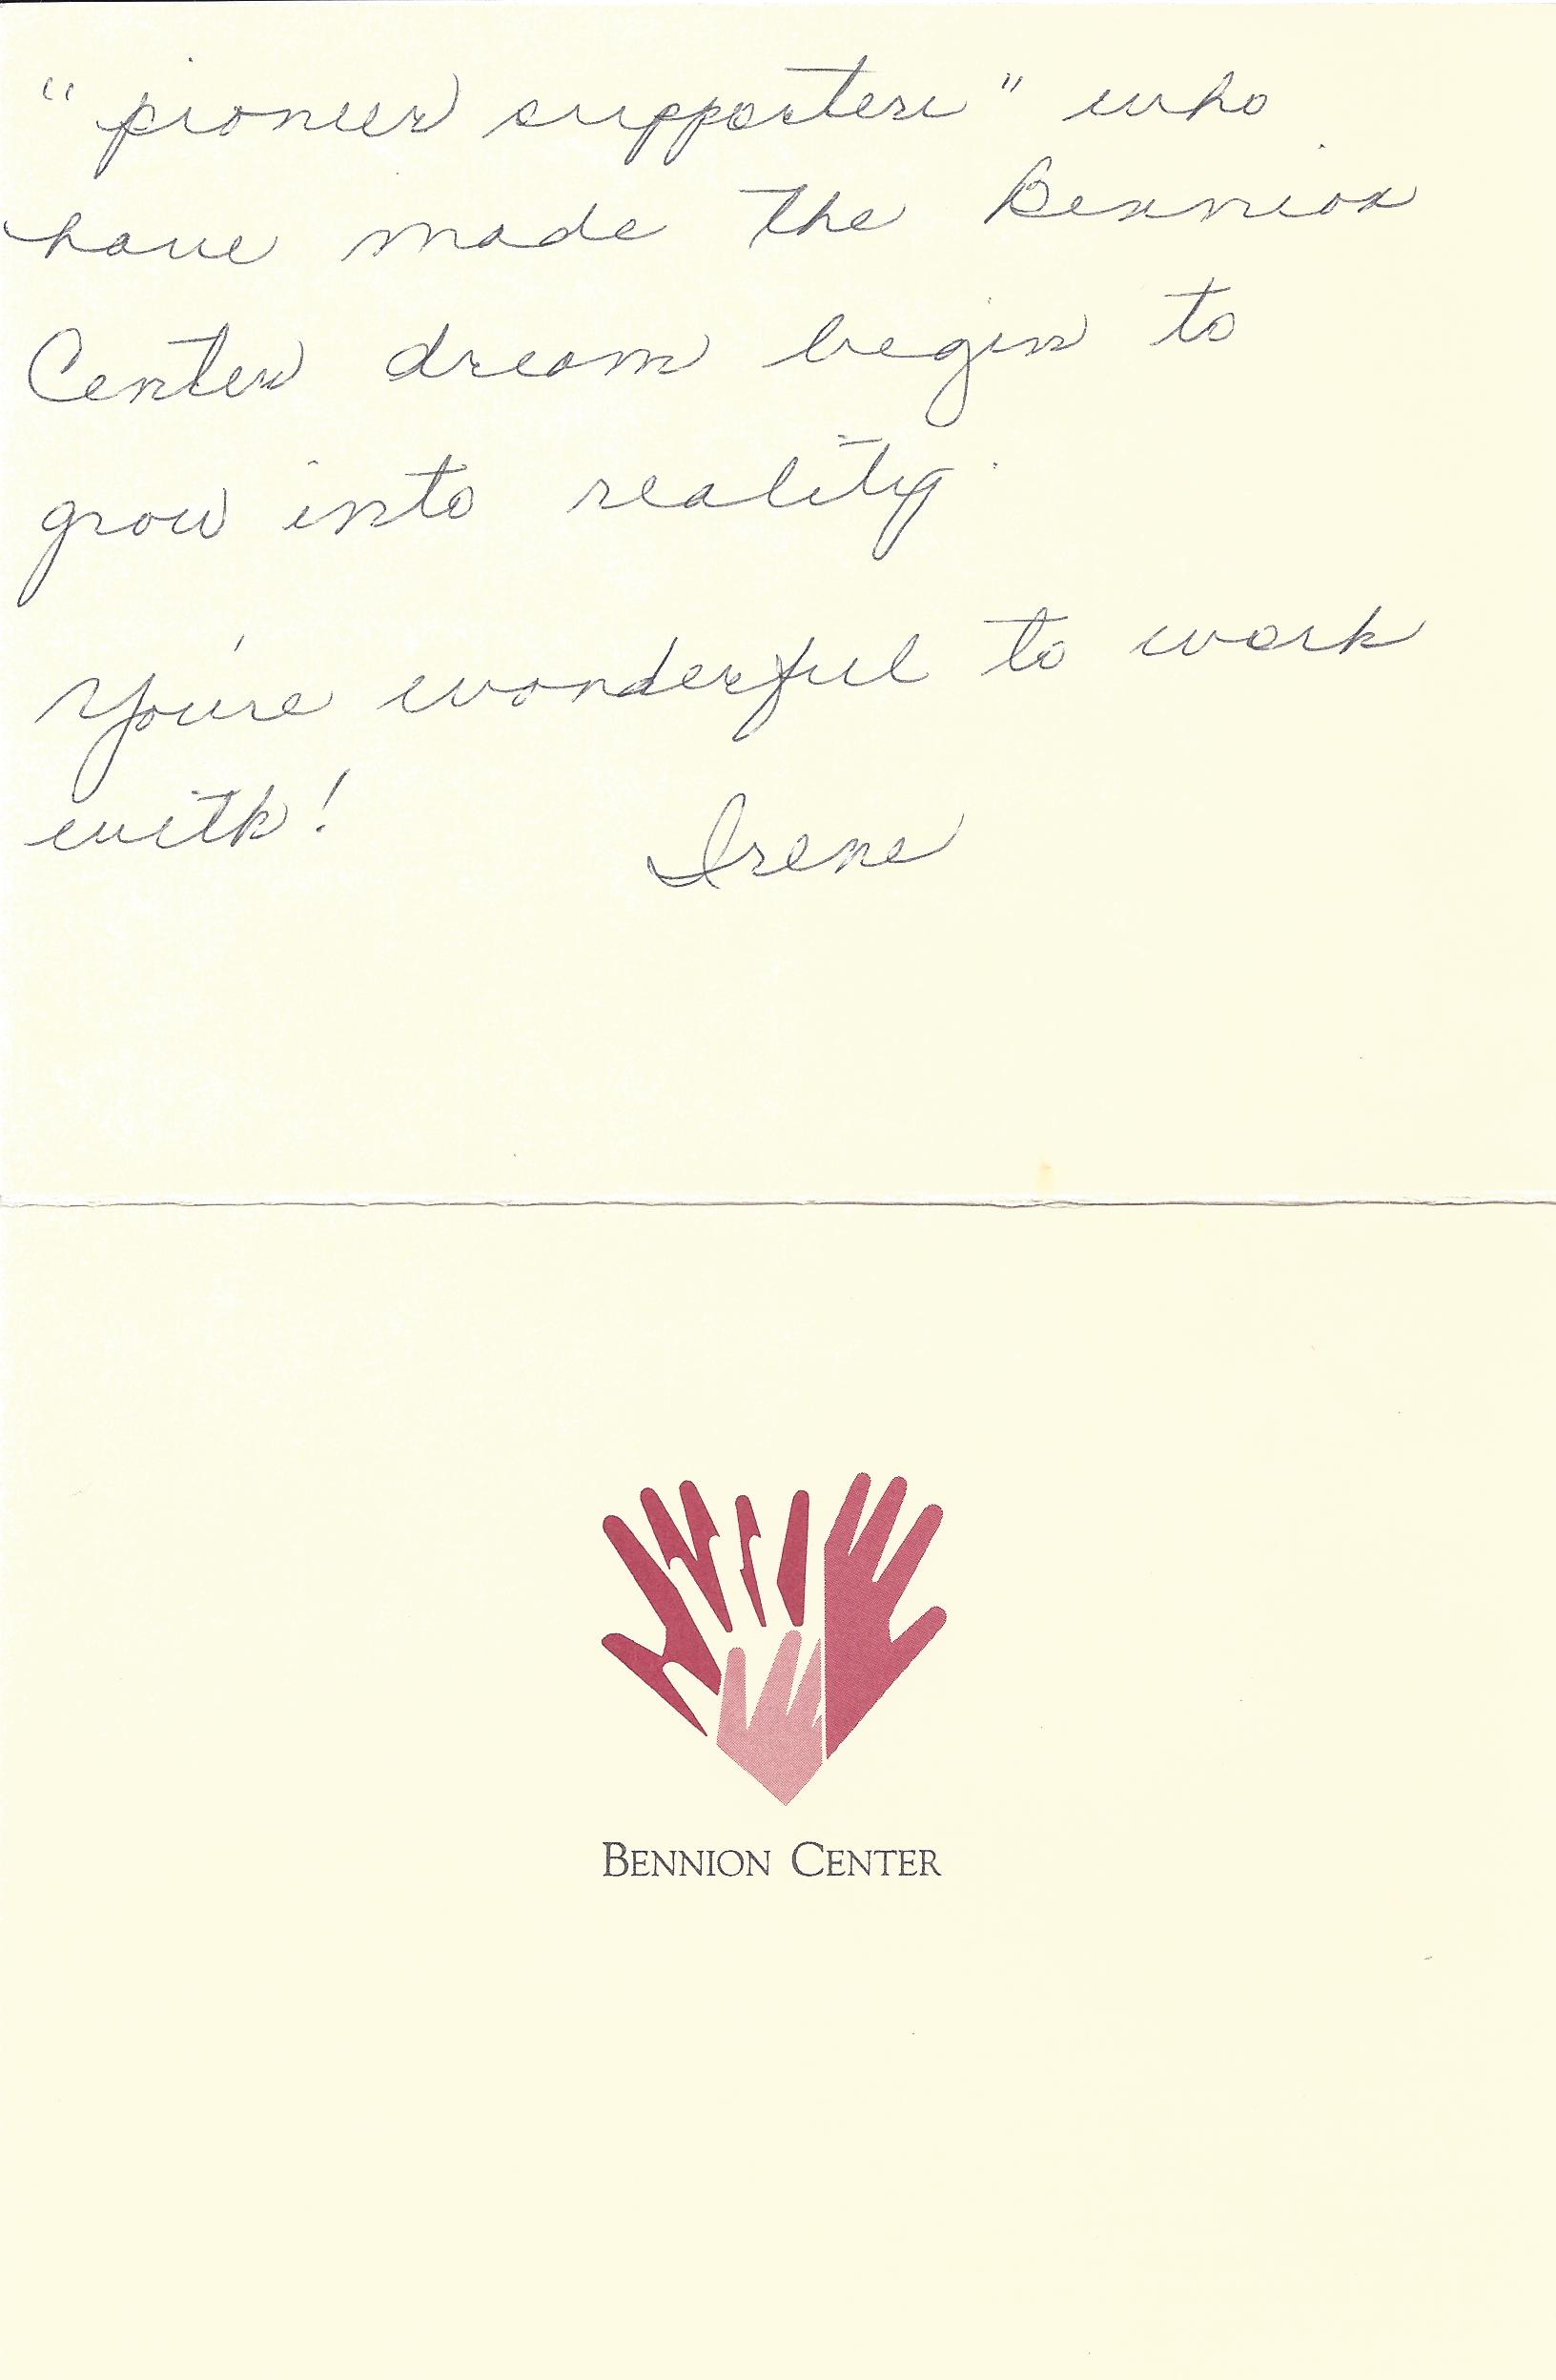 "pioneer supporters" who
have made the Bennion
Center dream begin to
grow into reality.
You're wonderful to work
with!
Irene
BENNION CENTER